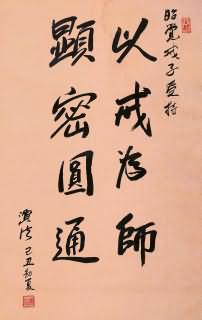 昭覺戒子受持
以戒為師
顯密圓通
演法 己丑初夏